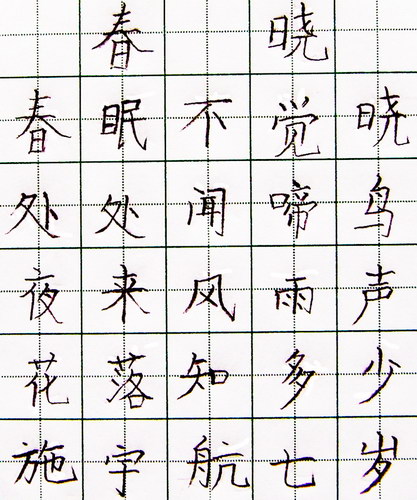 春晓
春眠不觉晓
处处闻啼鸟
夜来风雨声
花落知多少
施宇航七岁